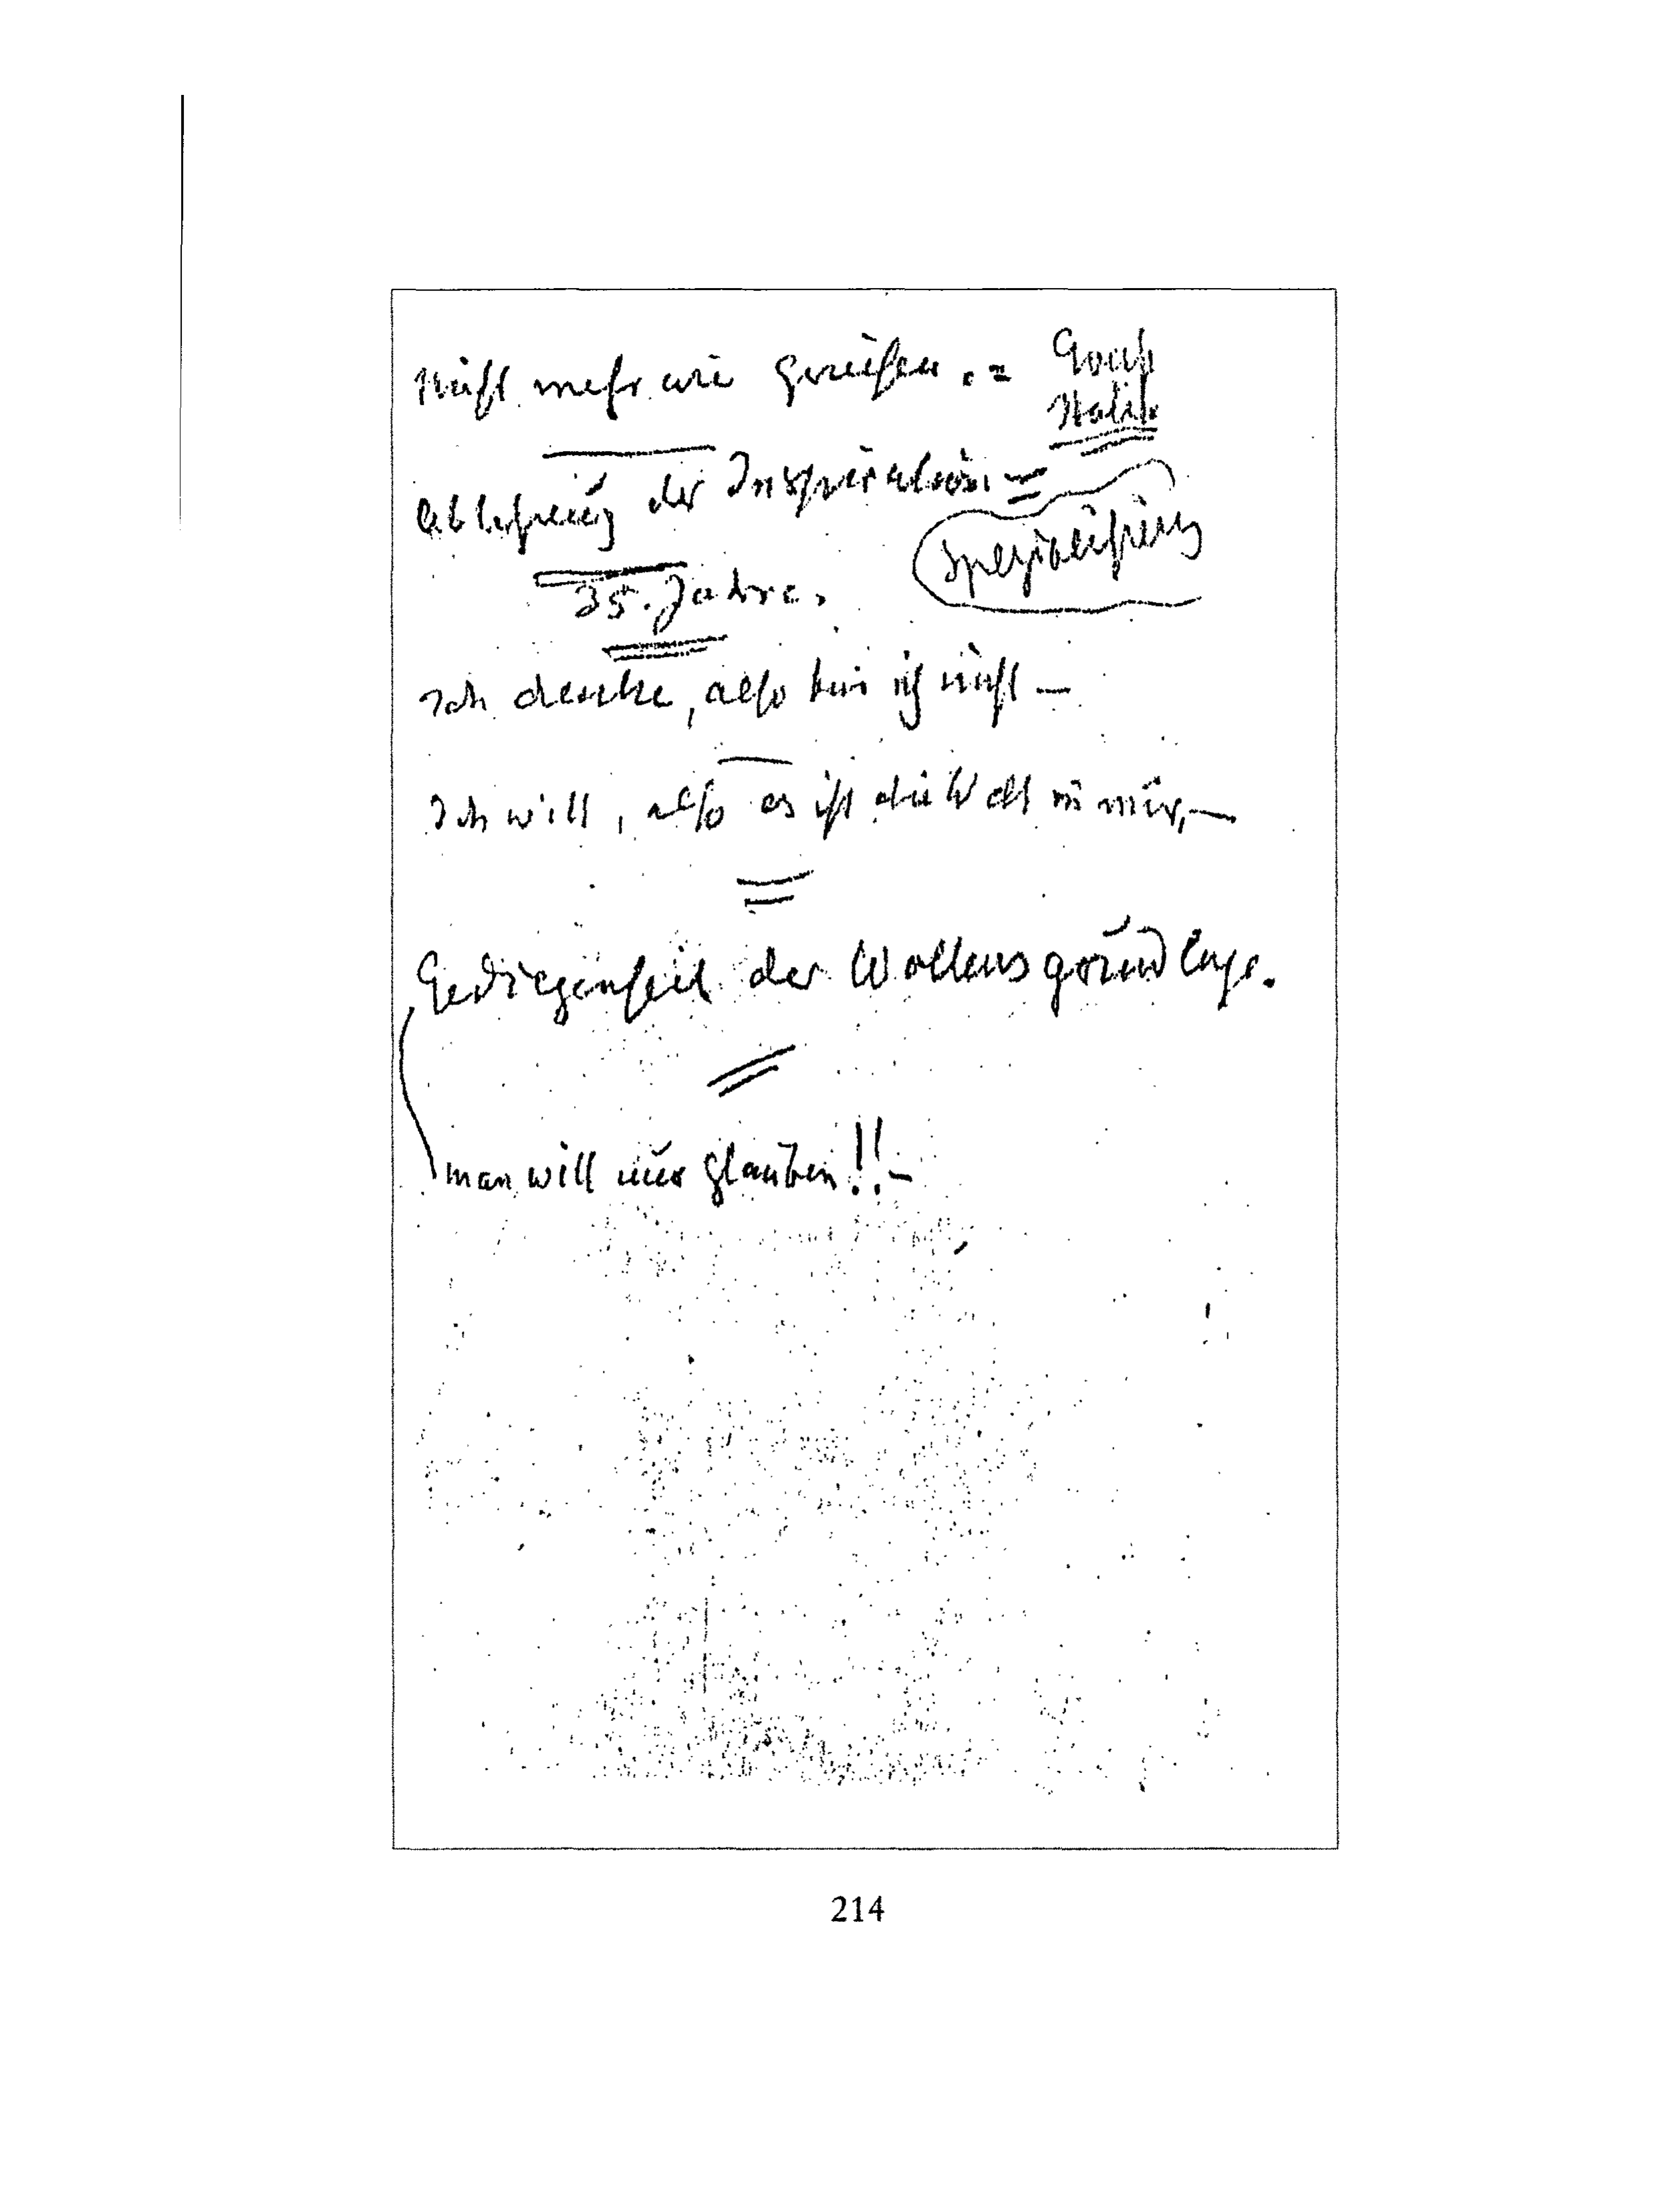 Nicht mehr wie Griechen. =
Ablehnung der Inspiration =
Spezialisierung
35. Jahre.
Ich denke, also bin ich nicht —
Ich will, also es ist die Welt in mir, —
Gediegenheit der Wollensgrundlage.
man will nur glauben!! —
214